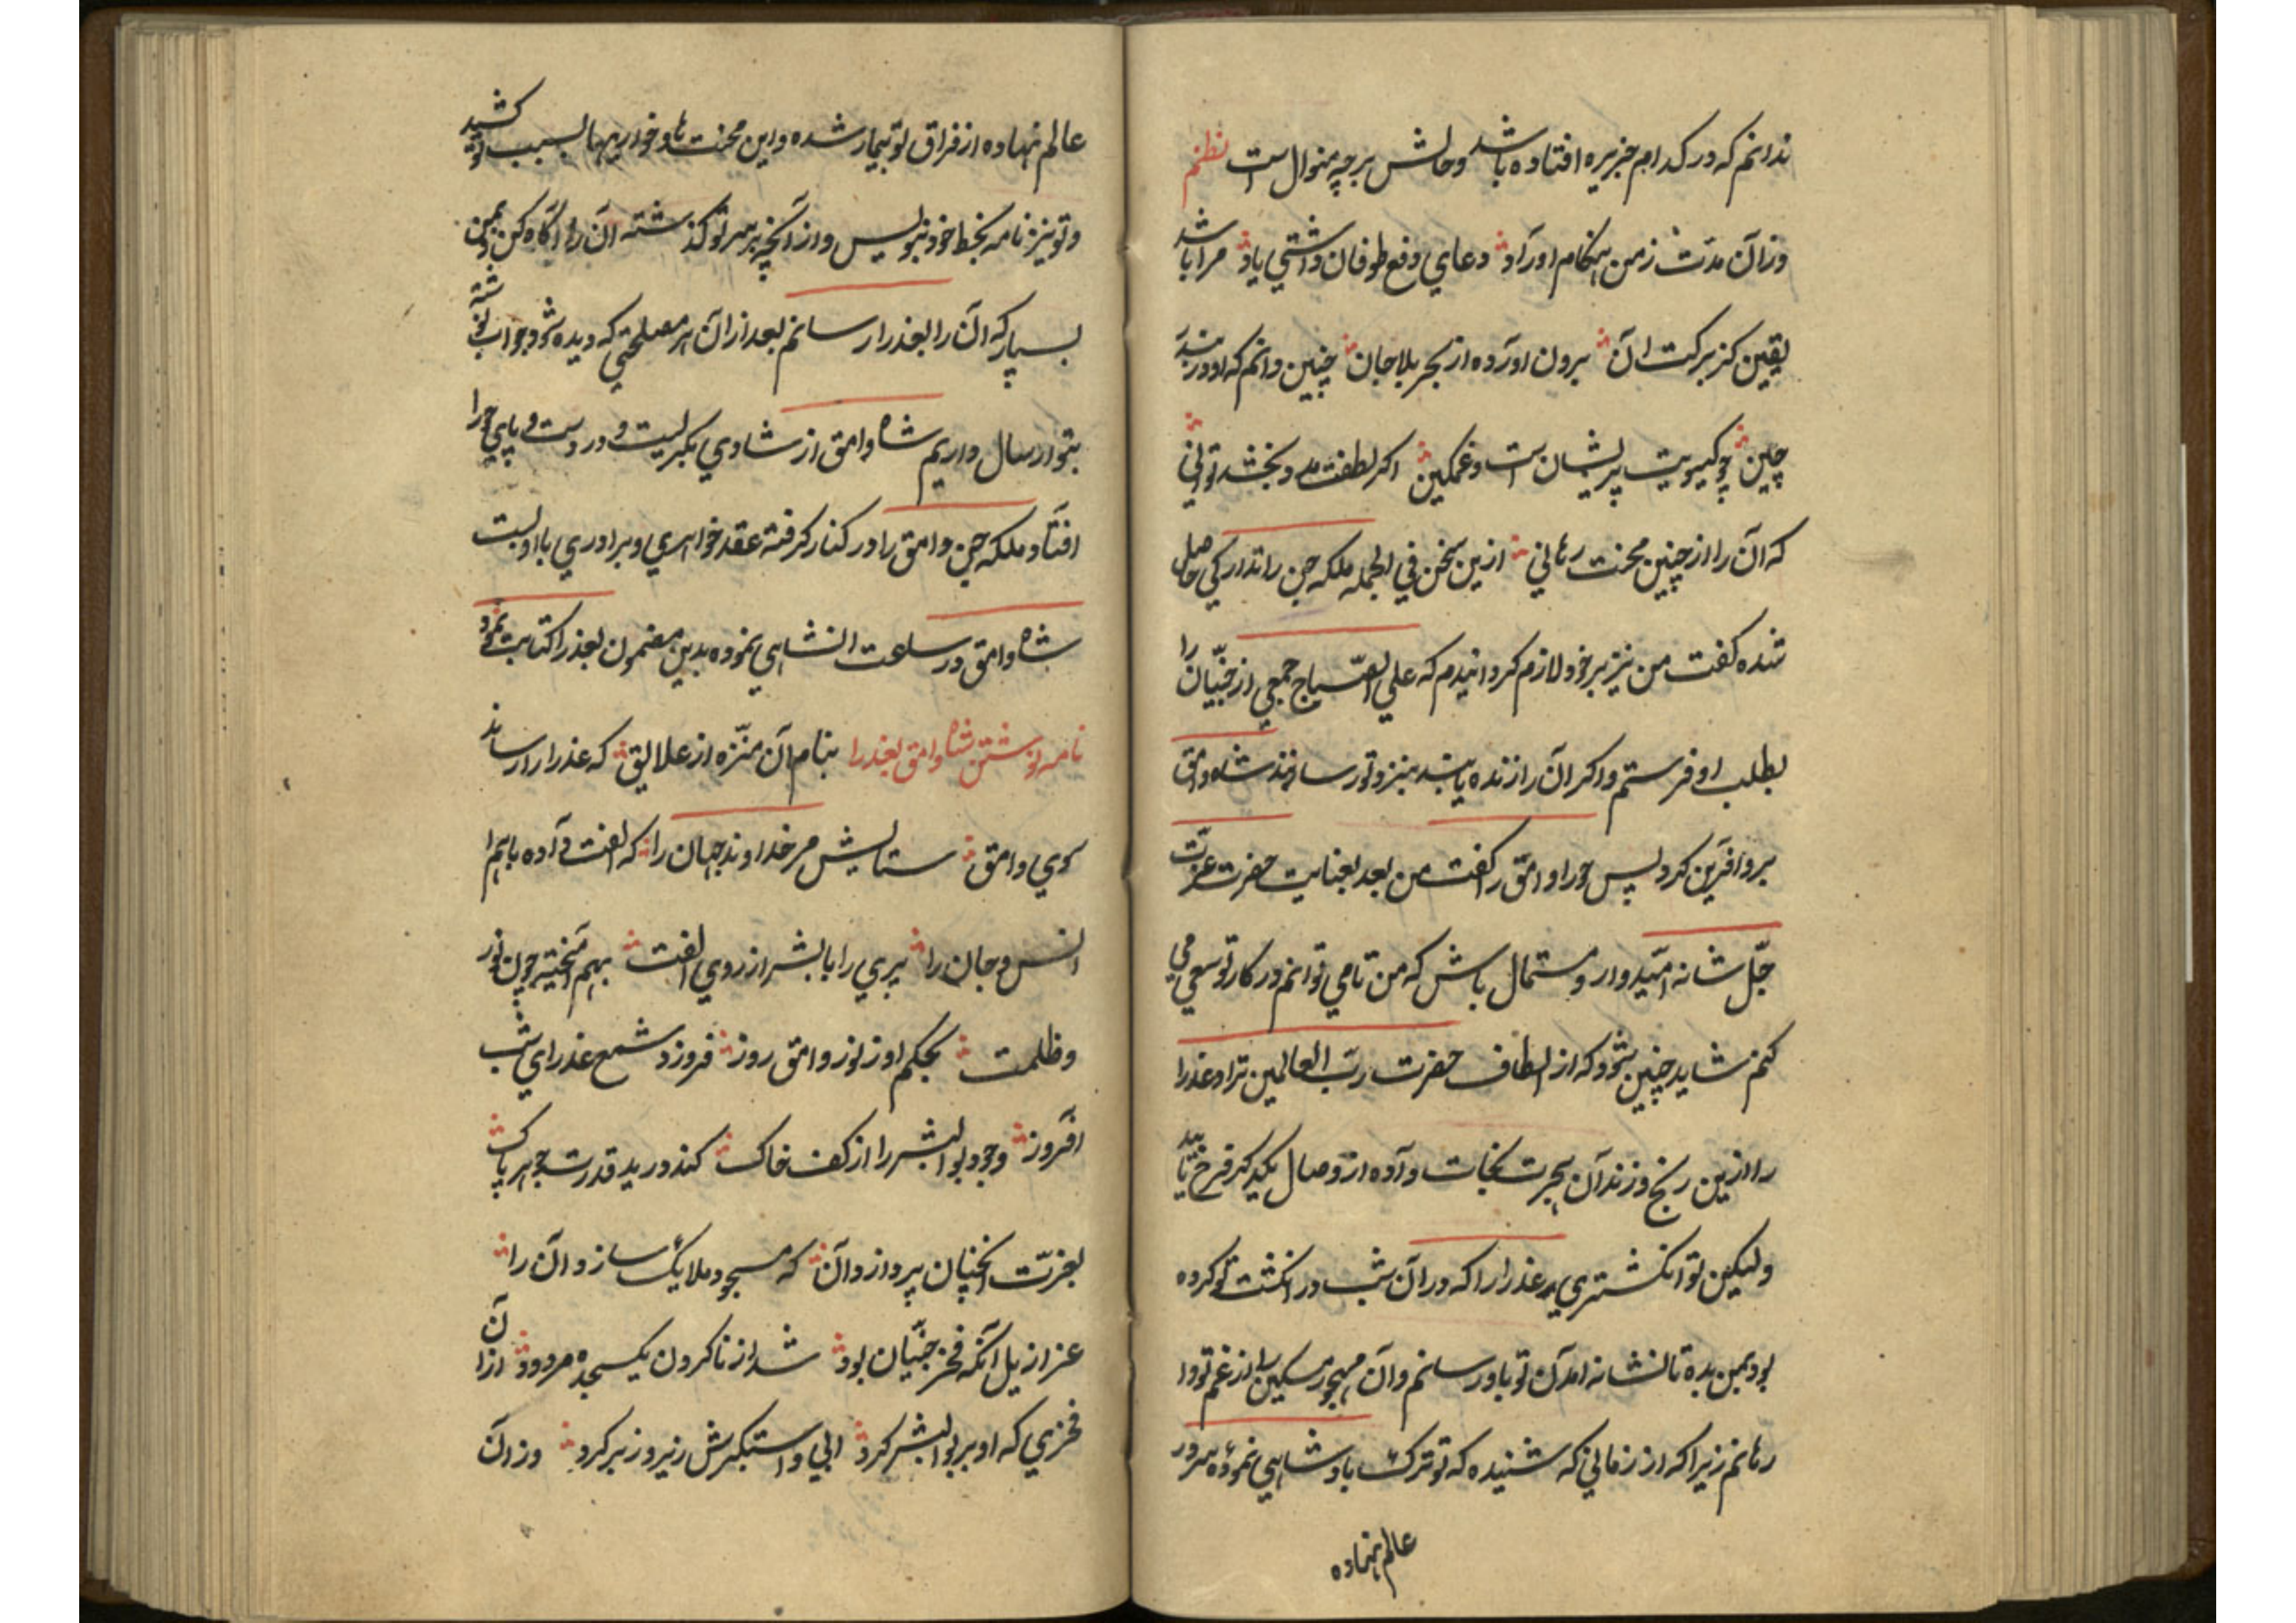 ندانم که در کدام جزیره افتاده باشد و حالش بر چه منوال است نظم
وزان مدت ز من هنگام اوراد دعای دفع طوفان داشتی یاد مرا باشد
یقین کز برکت آن برون آورده از بحر بلا جان چنین دانم که او در بند
چین چو کیسویت پریشانست و غمکین اکر لطفت مدد بخشد توانی
که آن را از چنین محنت رهانی ازین سخن فی الجمله ملکه جن را تدارکی حاصل
شده کفت من نیز بر خود لازم کردانیدم که علی الصباح جمعی از جنیان را
بطلب او فرستم و اکر آن را زنده یابند بنزد تو رسانند شاه وامق
برو آفرین کرد پس حورا وامق را کفت من بعد بعنایت حضرت عزت
جل شانه امیدوار و مستمال باش که من تا می توانم در کار تو سعی می
کنم شاید چنین شود که از الطاف حضرت رب العالمین ترا و عذرا
را ازین رنج و زندان هجرت نجات داده از وصال یکدیکر فرخ یابید
ولیکن تو انکشتری عذرا را که در آن شب در انکشت تو کرده
بود بمن بده تا نشانه امدن تو باو رسانم و آن مهجور مسکین را از غم تو وا
رهانم زیرا که از زمانی که شنیده که تو ترک پادشاهی نموده سر در
عالم نهاده
عالم نهاده از فراق تو بیمار شده و این محنت ها و خواریها بسبب تو کشید
و تو نیز نامه بخط خود بنویس و از آنچه بر سر تو کذشته آن را آکاه کن و بمن
بسپار که آن را بعذرا رسانم بعد از آن هر مصلحتی که دیده شود جواب نوشته
بتو ارسال داریم شاه وامق از شادی بکریست و در دست و پای حورا
افتاد ملکه جن وامق را در کنار کرفته عقد خواهری و برادری با او بست
شاه وامق در ساعت انشاهی نموده بدین مضمون بعذرا کتابت نمود
نامه نوشتن شاه وامق بعذرا بنام آن منزه از علایق که عذرا را رساند
سوی وامق ستایش مر خداوند جهان را که الفت داده با هم
انس و جان را پری را با بشر از روی الفت بهم آمیخته چون نور
و ظلمت بحکم او ز نور وامق روز فروزد شمع عذرای شب
افروز وجود بو البشر را از کف خاک کند در ید قدرت جوهر پاک
بعزت آنچنان پردازد آن که مسجود ملایک سازد آن را
عزازیل آنکه فخر جنیان بود شد از ناکردن یک سجده مردود از آن
فخری که او بر بو البشر کرد ابی و استکبرش زیر و زبر کرد وز آن